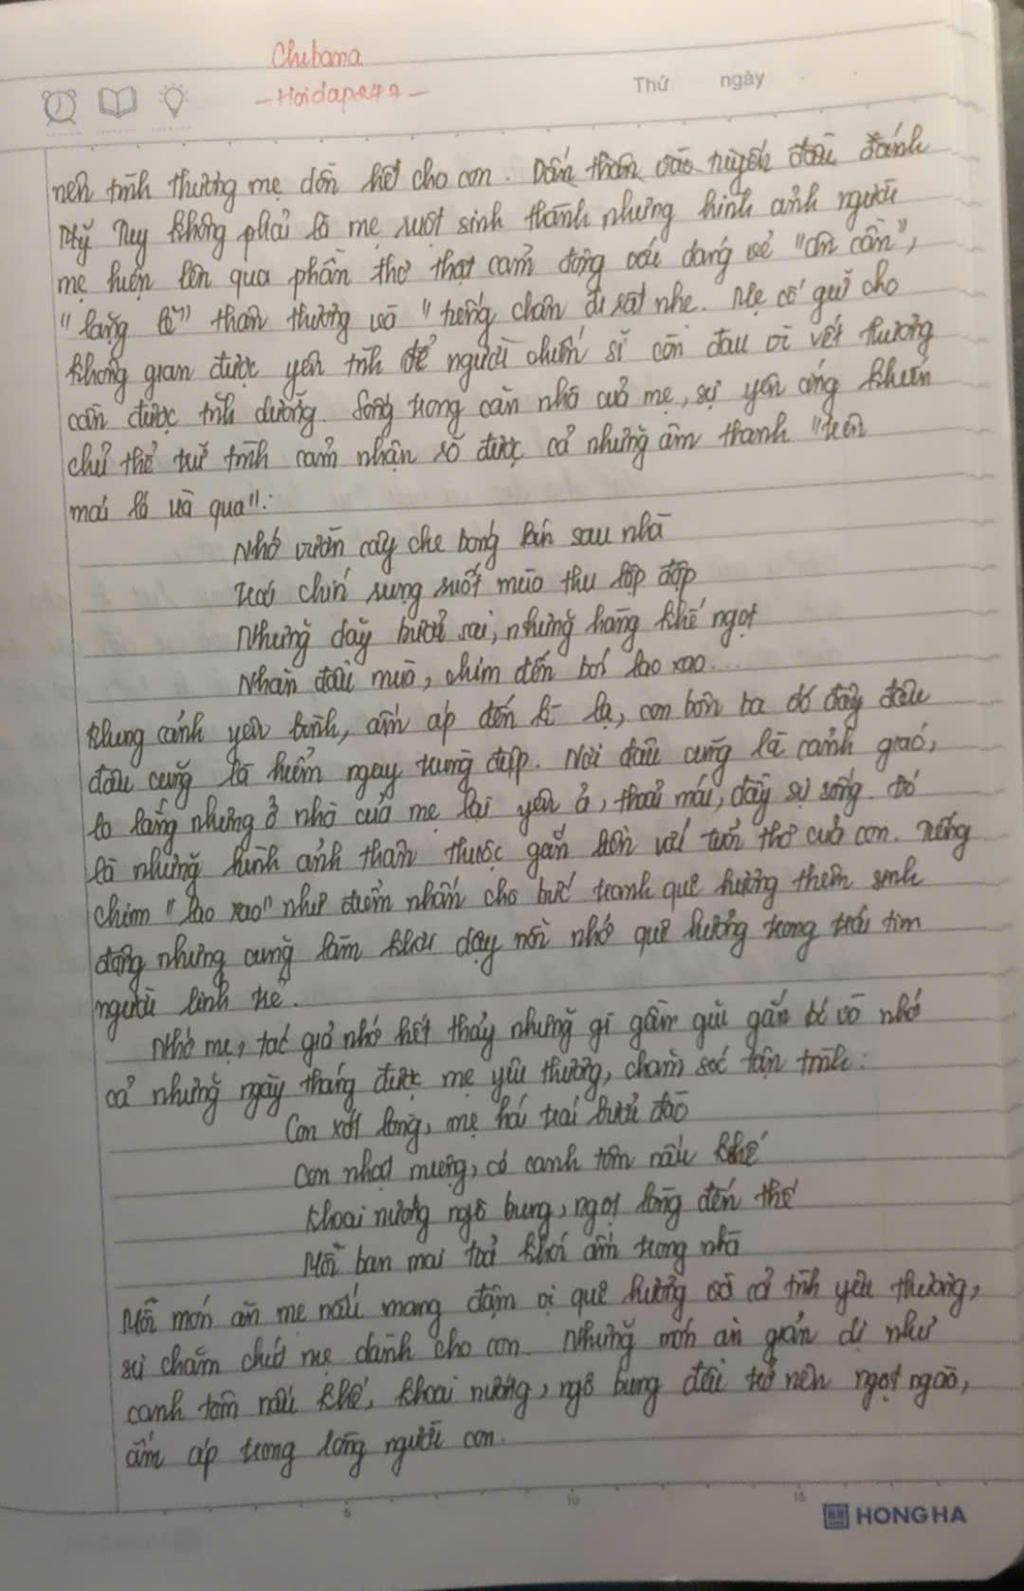 Chibana
- Hoidap247 -
Thứ ngày
nên tình thương mẹ dồn hết cho con. Dấn thân vào tuyến đầu đánh
Mỹ Tuy không phải là mẹ ruột sinh thành nhưng hình ảnh người
mẹ hiện lên qua phần thơ thật cảm động với dáng vẻ "ân cần",
"lặng lẽ" thân thương và "tiếng chân đi rất nhẹ. Mẹ cố giữ cho
không gian được yên tĩnh để người chiến sĩ còn đau vì vết thương
cần được tĩnh dưỡng. Sống trong căn nhà của mẹ, sự yên ắng khiến
chủ thể trữ tình cảm nhận rõ được cả những âm thanh "trên
mái lá ùa qua":
Nhớ vườn cây che bóng kín sau nhà
Trái chín rụng suốt mùa thu lộp độp
Những dãy bưởi sai, những hàng khế ngọt
Nhãn đầu mùa, chim đến bói lao xao...
Khung cảnh yên bình, ấm áp đến kì lạ, con bôn ba đó đây đều
đâu cũng là hiểm nguy trùng điệp. Nơi đâu cũng là cảnh giác,
lo lắng nhưng ở nhà của mẹ lại yên ả, thoải mái, đầy sự sống. Đó
là những hình ảnh thân thuộc gắn liền với tuổi thơ của con. Tiếng
chim "lao xao" như điểm nhấn cho bức tranh quê hương thêm sinh
động nhưng cũng làm khơi dậy nỗi nhớ quê hương trong trái tim
người lính trẻ.
Nhớ mẹ, tác giả nhớ hết thảy những gì gần gũi gắn bó và nhớ
cả những ngày tháng được mẹ yêu thương, chăm sóc tận tình:
Con xót lòng, mẹ hái trái bưởi đào
Con nhạt miệng, có canh tôm nấu khế
Khoai nướng ngô bung, ngọt lòng đến thế
Mỗi ban mai toả khói ấm trong nhà
Mỗi món ăn mẹ nấu mang đậm vị quê hương và cả tình yêu thương,
sự chăm chút mẹ dành cho con. Những món ăn giản dị như
canh tôm nấu khế, khoai nướng, ngô bung đều trở nên ngọt ngào,
ấm áp trong lòng người con.
5 10 15
HONG HA